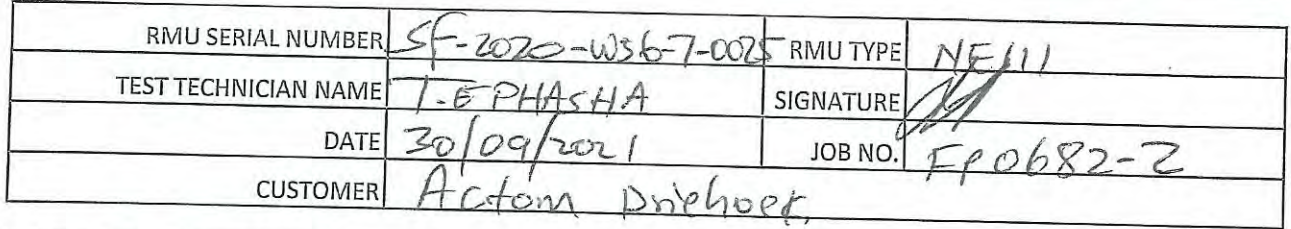 RMU SERIAL NUMBER SF-2020-W36-7-0025 RMU TYPE NE111
TEST TECHNICIAN NAME T.E PHASHA SIGNATURE
DATE 30/09/2021 JOB NO. FP0682-2
CUSTOMER Actom Driehoek